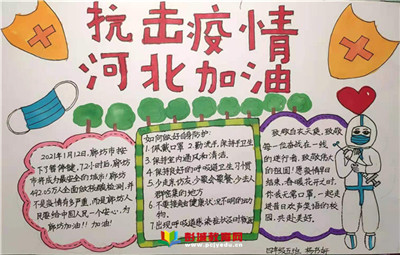 抗击疫情
河北加油
2021年1月12日,廊坊市按
下了暂停键,72小时后,廊坊
市将成为最安全的城市!廊坊
492.05万人全面做核酸检测,并
不是疫情有多严重,而是廊坊人
民要给中国人民一个安心,为
廊坊加油!!加油!
如何做好自身防护:
1.佩戴口罩 2.勤洗手,保持卫生
3.保持室内通风和清洁.
4.保持良好的呼吸道卫生习惯
5.少走亲访友,少聚会聚餐,少去人
群密集的地方
6.不要接触健康状况不明的动物.
7.出现呼吸道感染症状应及时就医
致敬白衣天使,致敬
每一位奋战在一线
的逆行者,致敬伟大
的祖国!愿疫情早日
结束,春暖花开之时,
你我无需口罩,一起走
进昔日欢声笑语的校
园,共赴美好.
彭城教育网
pcjyedu.cn